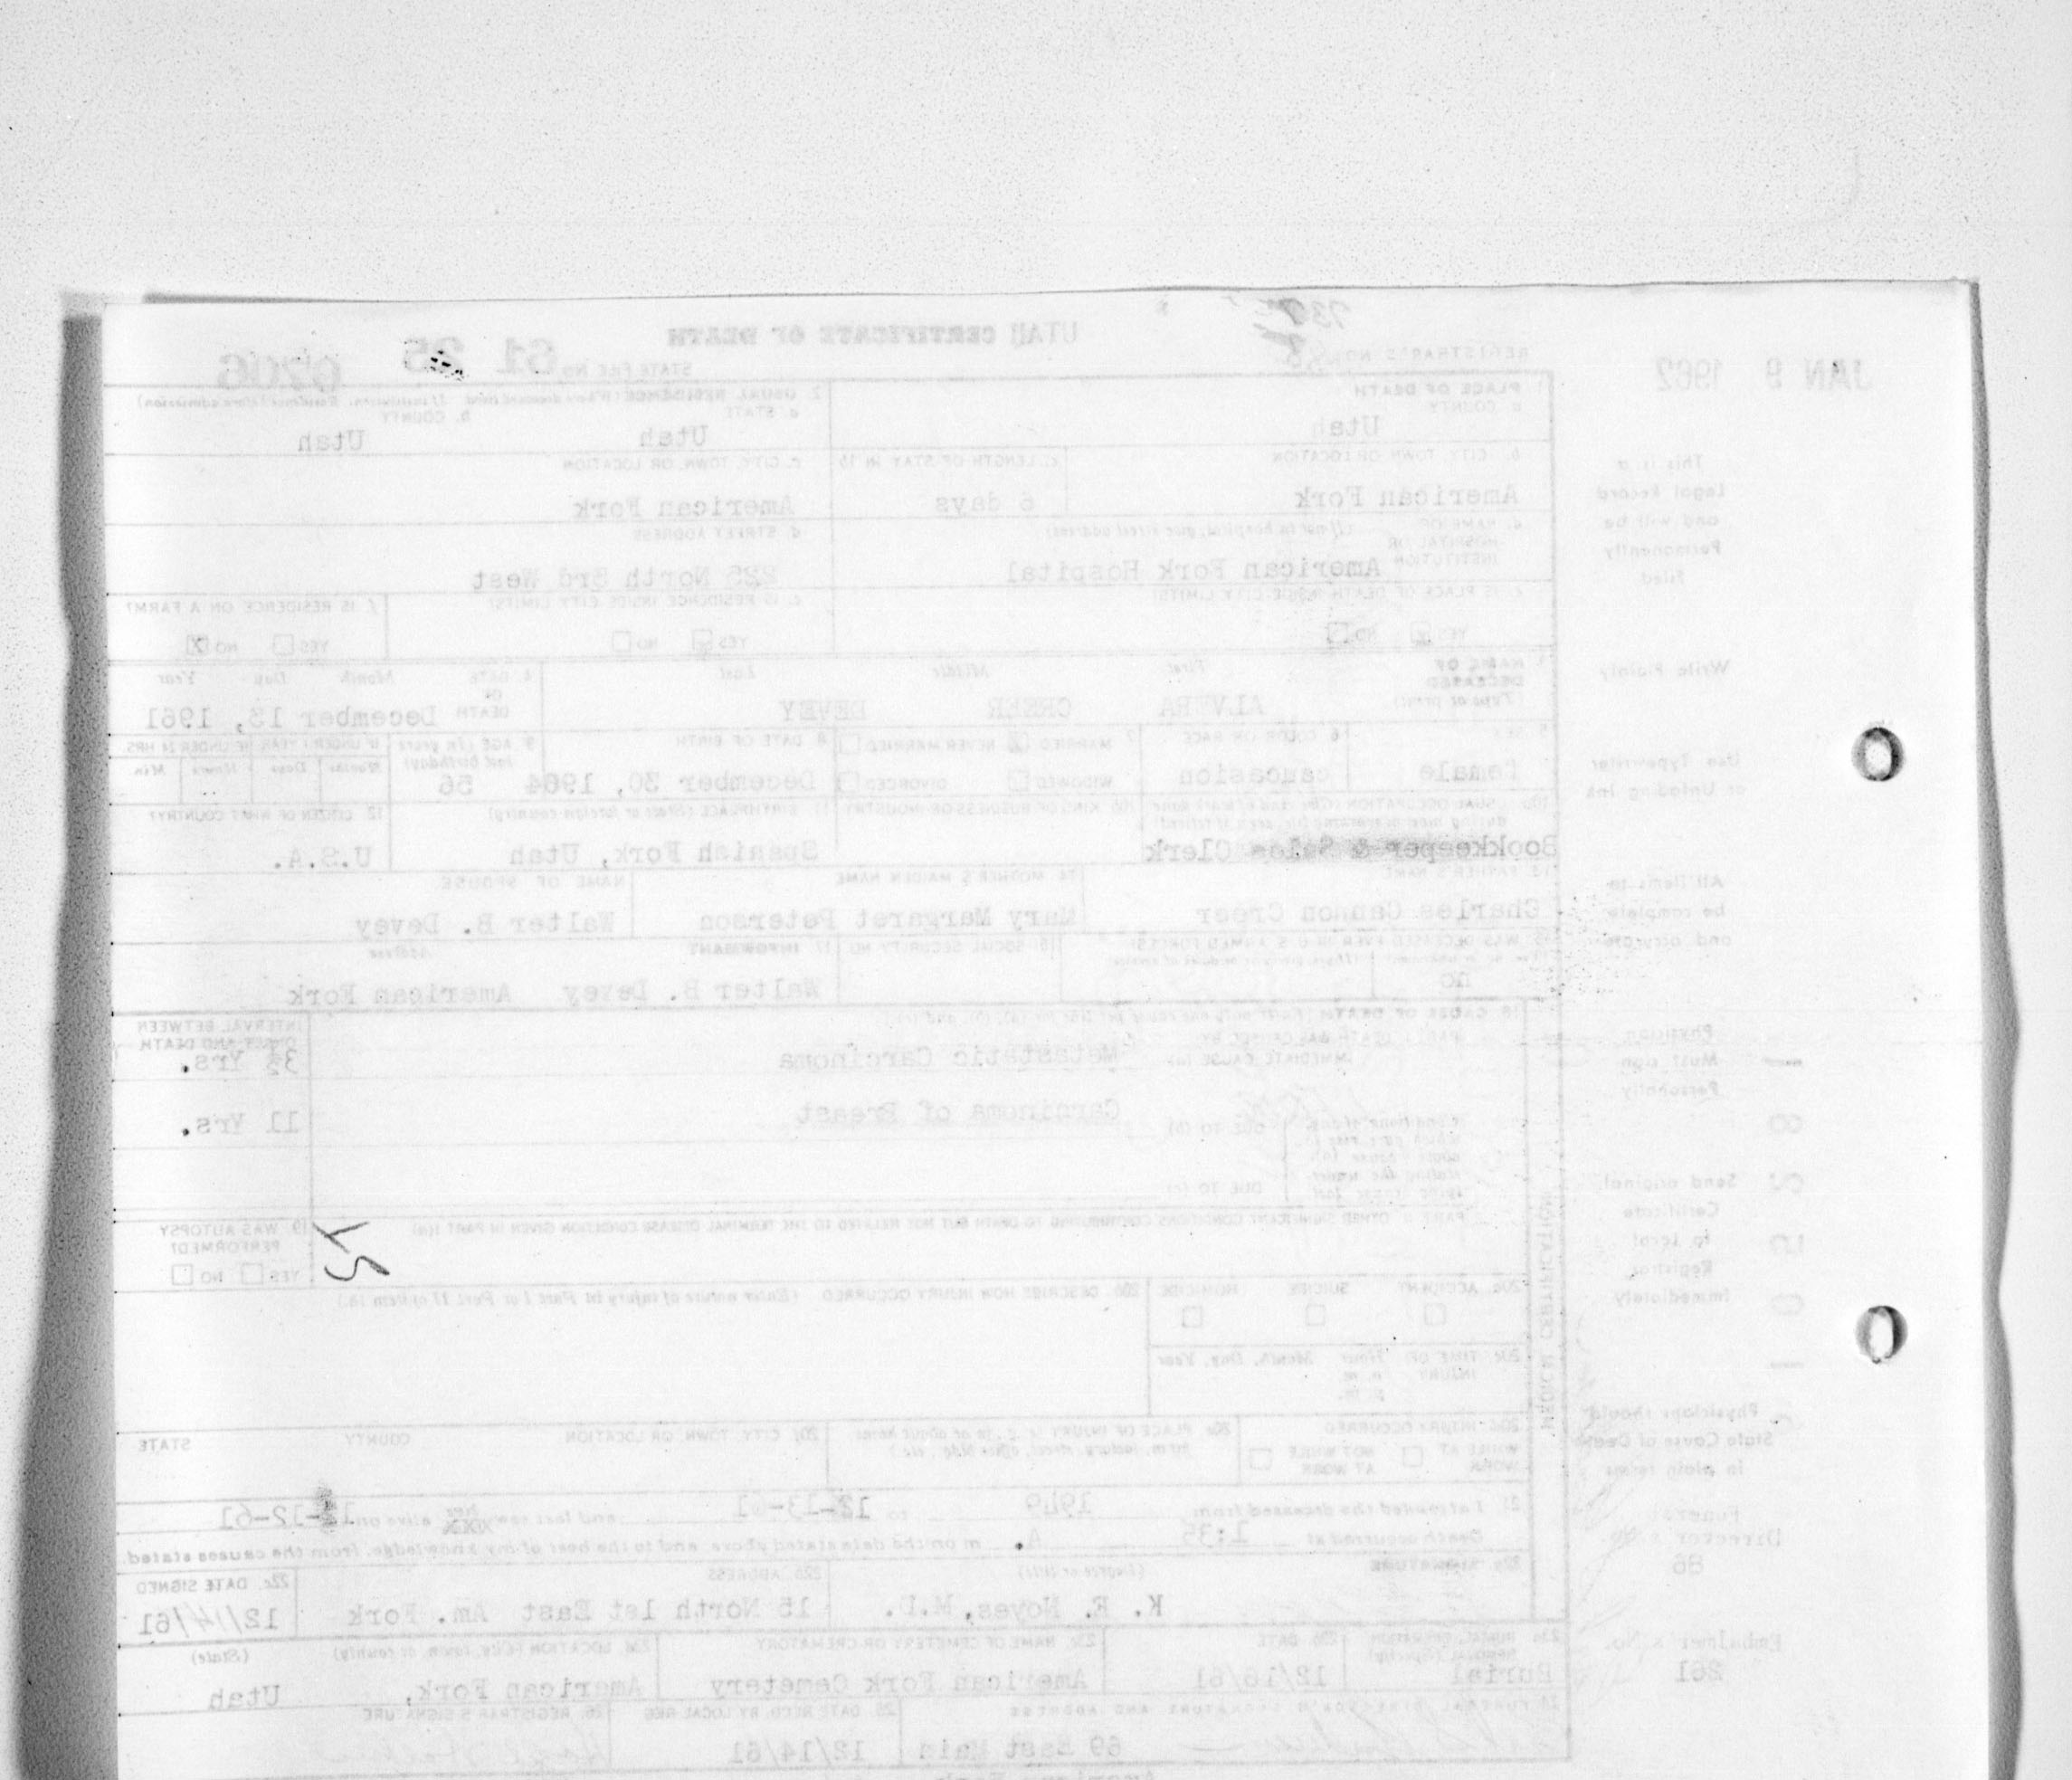 UTAH CERTIFICATE OF DEATH
JAN 9 1962
REGISTRAR'S NO.
STATE FILE NO. 61 25 0206
This is a
Legal Record
and will be
Permanently
Filed
Write Plainly
Use Typewriter
or Unfading Ink
All items to
be complete
and accurate
Physician
Must sign
Personally
Send original
Certificate
to Local
Registrar
Immediately
Physicians should
State Cause of Death
in plain terms
Funeral
Director's No.
86
Embalmer's No.
261
1. PLACE OF DEATH
a. COUNTY
Utah
2. USUAL RESIDENCE (Where deceased lived. If institution, Residence before admission)
a. STATE b. COUNTY
Utah Utah
b. CITY, TOWN OR LOCATION c. LENGTH OF STAY IN 1b
American Fork 6 days
c. CITY, TOWN, OR LOCATION
American Fork
d. NAME OF HOSPITAL OR INSTITUTION (If not in hospital, give street address)
American Fork Hospital
d. STREET ADDRESS
225 North 3rd West
e. IS PLACE OF DEATH INSIDE CITY LIMITS?
YES NO
e. IS RESIDENCE INSIDE CITY LIMITS?
YES NO
f. IS RESIDENCE ON A FARM?
YES NO X
3. NAME OF DECEASED (Type or print) First Middle Last
ALVERA CREER DEVEY
4. DATE OF DEATH Month Day Year
December 13, 1961
5. SEX
female
6. COLOR OR RACE
caucasion
7. MARRIED X NEVER MARRIED
WIDOWED DIVORCED
8. DATE OF BIRTH
December 30, 1904
9. AGE (In years last birthday)
56
IF UNDER 1 YEAR IF UNDER 24 HRS.
Months Days Hours Min.
10a. USUAL OCCUPATION (Give kind of work done during most of working life, even if retired)
Bookkeeper & Sales Clerk
10b. KIND OF BUSINESS OR INDUSTRY
11. BIRTHPLACE (State or foreign country)
Spanish Fork, Utah
12. CITIZEN OF WHAT COUNTRY?
U.S.A.
13. FATHER'S NAME
Charles Cannon Creer
14. MOTHER'S MAIDEN NAME
Mary Margaret Peterson
NAME OF SPOUSE
Walter B. Devey
15. WAS DECEASED EVER IN U.S. ARMED FORCES?
no
16. SOCIAL SECURITY NO.
17. INFORMANT Address
Walter B. Devey American Fork
18. CAUSE OF DEATH (Enter only one cause per line for (a), (b), and (c))
PART I. DEATH WAS CAUSED BY
IMMEDIATE CAUSE (a) Metastatic Carcinoma
INTERVAL BETWEEN
ONSET AND DEATH
3½ Yrs.
DUE TO (b) Carcinoma of Breast
11 Yrs.
Conditions, if any,
which gave rise to
above cause (a),
stating the under-
lying cause last
DUE TO (c)
PART II OTHER SIGNIFICANT CONDITIONS CONTRIBUTING TO DEATH BUT NOT RELATED TO THE TERMINAL DISEASE CONDITION GIVEN IN PART I(a)
19. WAS AUTOPSY
PERFORMED?
YES NO
MEDICAL CERTIFICATION
20a. ACCIDENT SUICIDE HOMICIDE
20b. DESCRIBE HOW INJURY OCCURRED. (Enter nature of injury in Part I or Part II of item 18.)
20c. TIME OF INJURY Hour Month, Day, Year
a. m.
p. m.
20d. INJURY OCCURRED
WHILE AT WORK NOT WHILE AT WORK
20e. PLACE OF INJURY (e.g., in or about home, farm, factory, street, office bldg., etc.)
20f. CITY, TOWN, OR LOCATION COUNTY STATE
21. I attended the deceased from 1949 to 12-13-61 and last saw her alive on 12-12-61
Death occurred at 1:35 A. m on the date stated above, and to the best of my knowledge, from the causes stated.
22a. SIGNATURE (Degree or title)
K. E. Noyes, M.D.
22b. ADDRESS
15 North 1st East Am. Fork
22c. DATE SIGNED
12/14/61
23a. BURIAL, CREMATION, REMOVAL (Specify)
Burial
23b. DATE
12/16/61
23c. NAME OF CEMETERY OR CREMATORY
American Fork Cemetery
23d. LOCATION (City, town, or county) (State)
American Fork, Utah
24. FUNERAL DIRECTOR'S SIGNATURE AND ADDRESS
69 East Main
25. DATE RECD. BY LOCAL REG.
12/14/61
26. REGISTRAR'S SIGNATURE